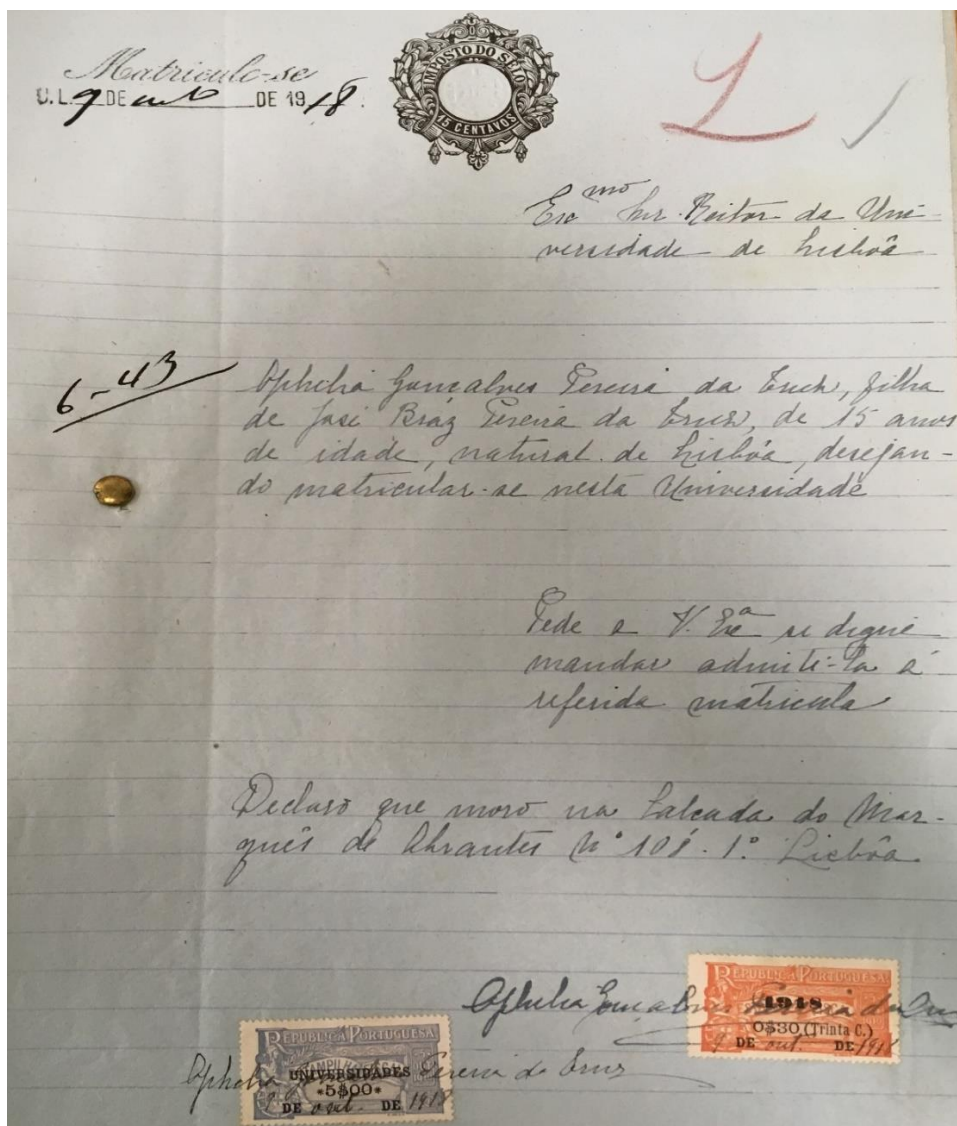 Matricule-se
U.L. 9 DE out DE 1918.
IMPOSTO DO SELO
15 CENTAVOS
L
Exc mo Snr. Reitor da Uni-
versidade de Lisbôa
6-43
Ophelia Gonçalves Pereira da Cruz, filha
de José Bráz Pereira da Cruz, de 15 anos
de idade, natural de Lisbôa, desejan-
do matricular-se nesta Universidade
Pede a V. Exª se digne
mandar admiti-la á
referida matricula
Declaro que moro na Calçada do Mar-
quês de Abrantes Nº 108-1º Lisbôa
Ophelia Gonçalves Pereira da Cruz
REPUBLICA PORTUGUESA
1918
0$30 (Trinta C.)
9 DE out. DE 1918
Ophelia Pereira da Cruz
REPUBLICA PORTUGUESA
ESTAMPILHA
UNIVERSIDADES
•5$00•
9 DE out. DE 1918